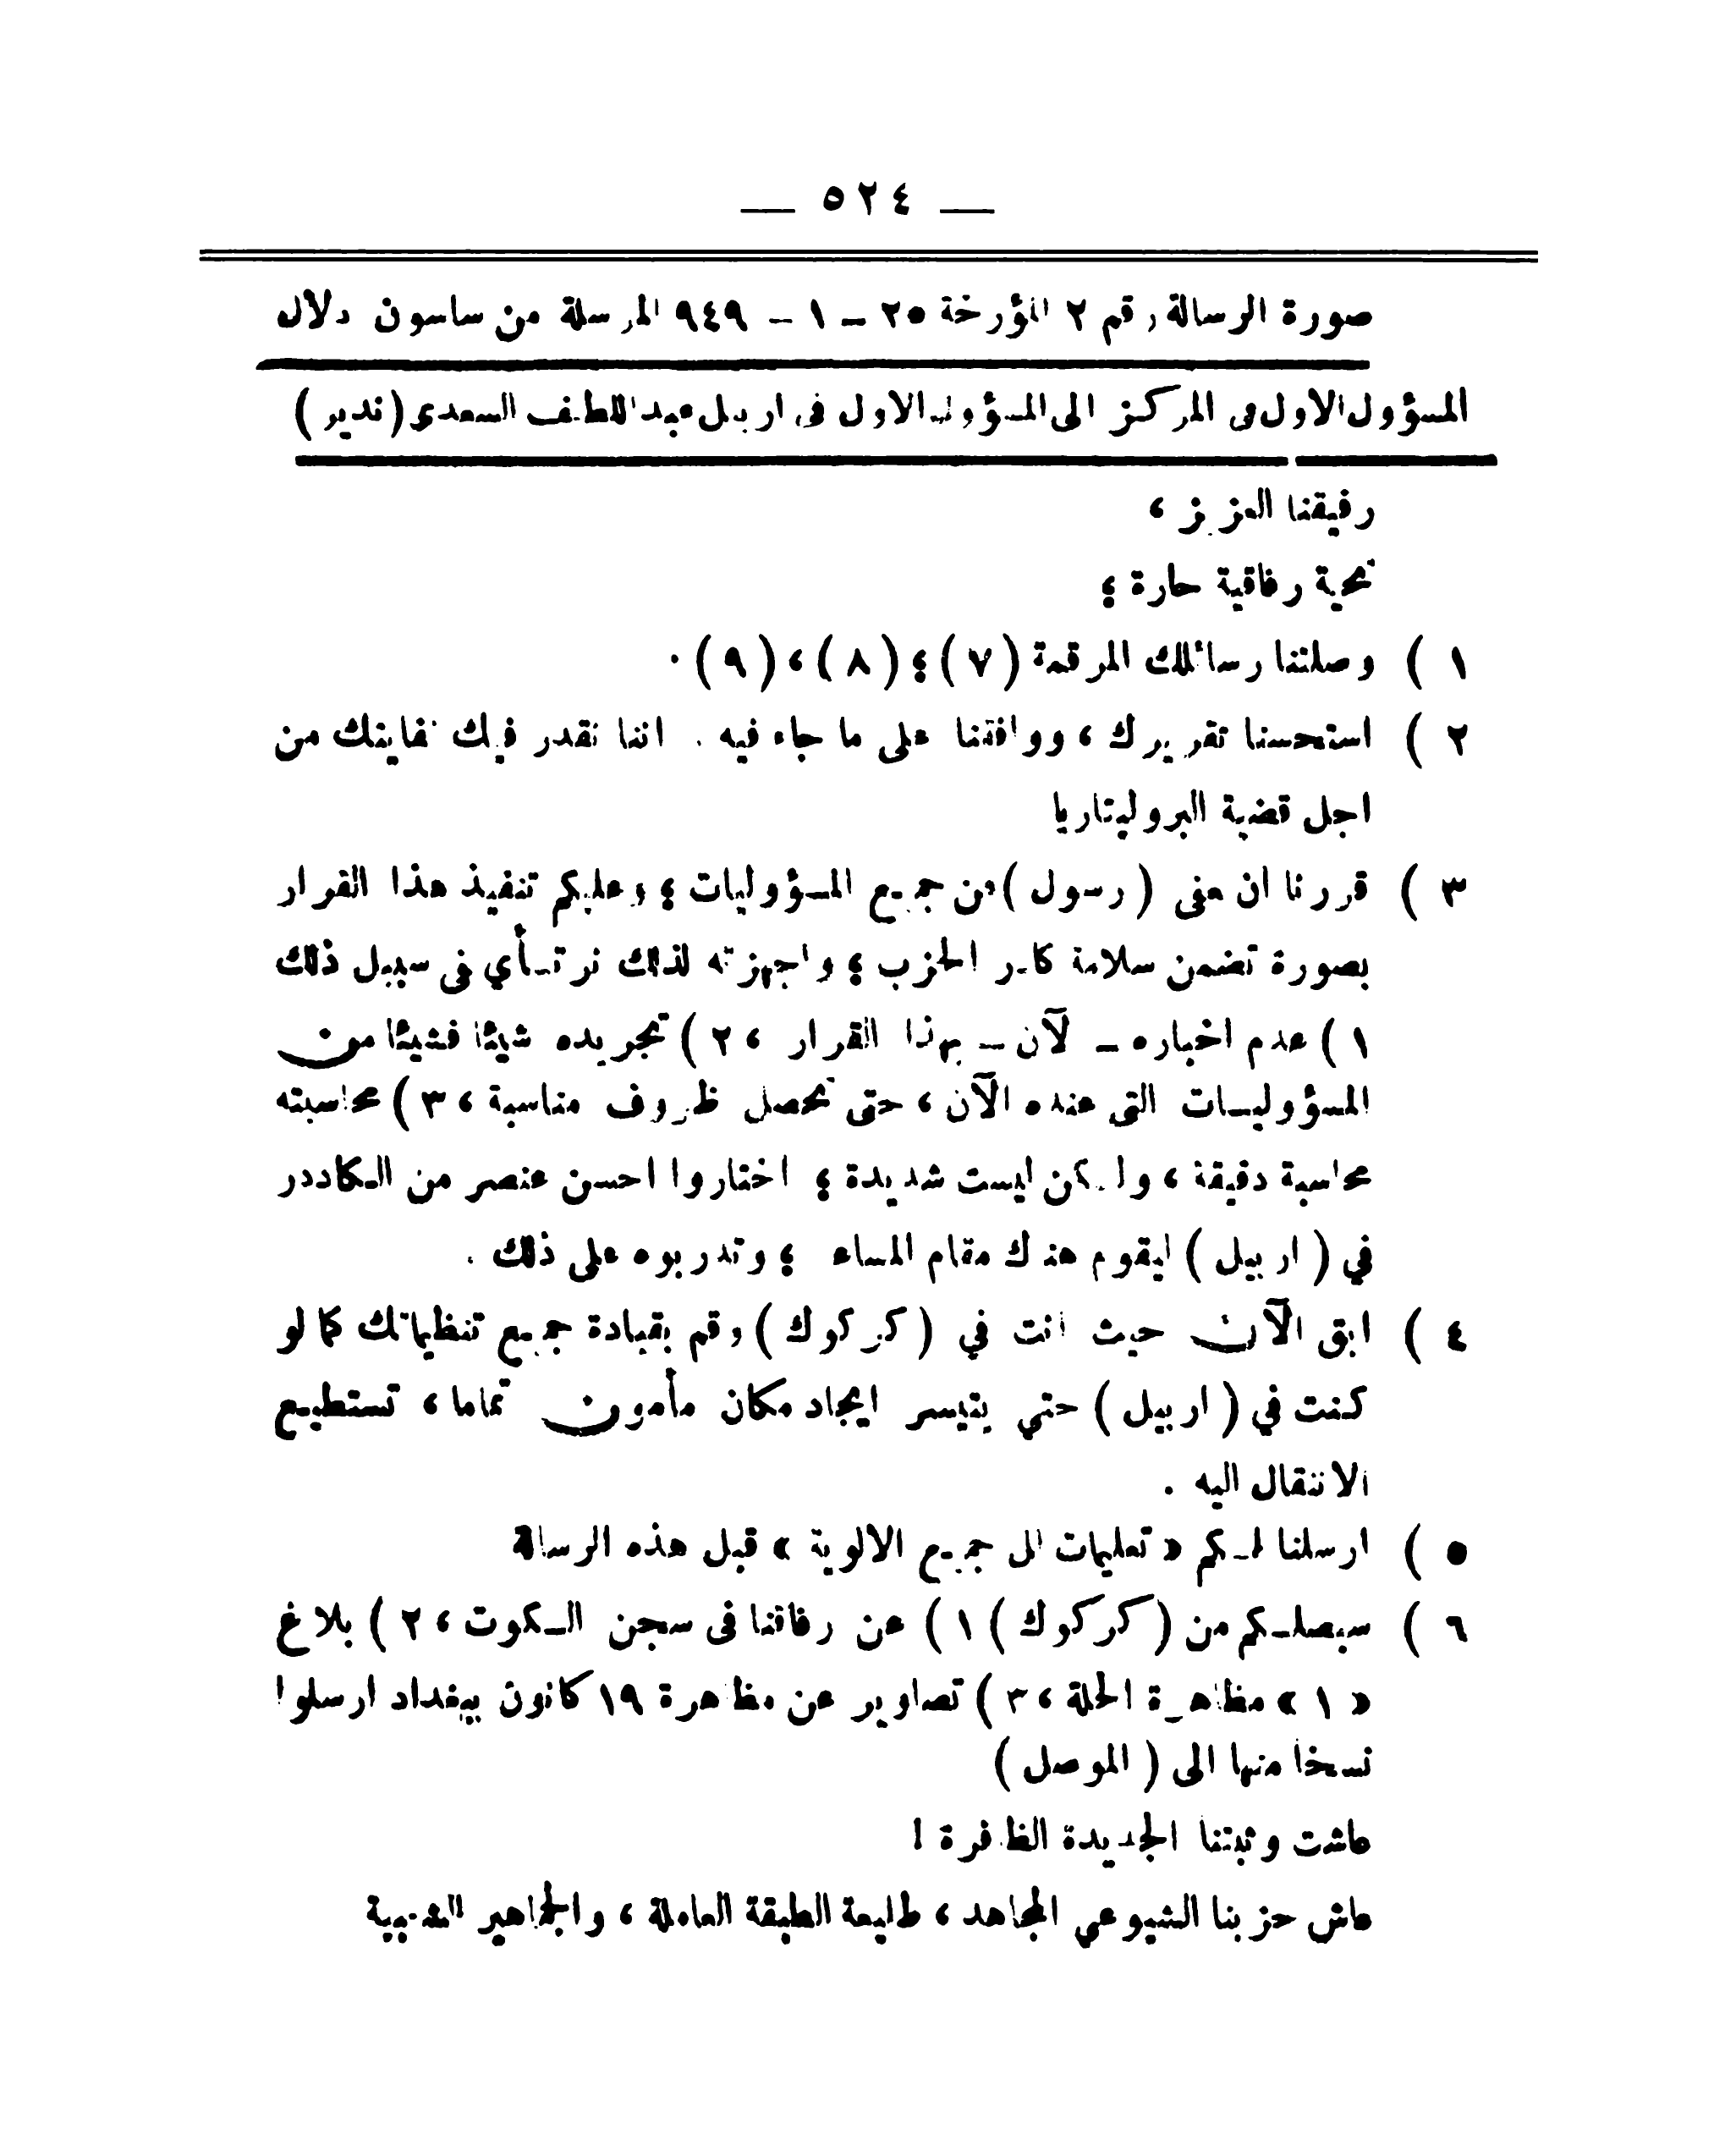 — ٥٢٤ —
صورة الرسالة رقم ٢ المؤرخة ٢٥ – ١ – ٩٤٩ المرسلة من ساسون دلال
المسؤول الاول في المركز الى المسؤول الاول في اربيل عبد اللطيف السعدي (ندير)
رفيقنا العزيز ،
تحية رفاقية حارة ؛
١ ) وصلتنا رسائلك المرقمة (٧) ؛ (٨) ، (٩) ٠
٢ ) استحسنا تقريرك ، ووافقنا على ما جاء فيه . اننا نقدر فيك تفانيك من
اجل قضية البروليتاريا
٣ ) قررنا ان يعفى ( رسول ) من جميع المسؤوليات ؛ وعليكم تنفيذ هذا القرار
بصورة تضمن سلامة كادر الحزب ؛ واجهزته لذلك نرتـأي في سبيل ذلك
١ ) عدم اخباره – الآن – بهذا القرار ، ٢ ) تجريده شيئا فشيئا من
المسؤوليـات التي عنده الآن ، حتى تحصل ظروف مناسبة ، ٣ ) محاسبته
محاسبة دقيقة ، ولـكن ليست شديدة ؛ اختاروا احسن عنصر من الـكاددر
في ( اربيل ) ليقوم هنـاك مقام المساء ؛ وتدربوه على ذلك .
٤ ) ابق الآن حيث انت في ( كركوك ) وقم بقيادة جميع تنظيماتك كما لو
كـنت في ( اربيل ) حتى يتيسر ايجاد مكان مأمون تماما ، تستطيـع
الانتقال اليه .
٥ ) ارسلنا لـكم « تعليمات الى جميع الالوية » قبل هذه الرسالة
٦ ) سيصلـكم من ( كركوك ) ١ ) عن رفاقنا في سجن الـكوت ، ٢ ) بلاغ
« ١ » مظاهرة الحلة ، ٣ ) تصاوير عن مظاهرة ١٩ كانون ببغداد ارسلوا
نسخا منها الى ( الموصل )
عاشت وثبتنا الجديدة الظافرة !
عاش حزبنا الشيوعي المجاهد ، طليعة الطبقة العاملة ، والجماهير الشعبية